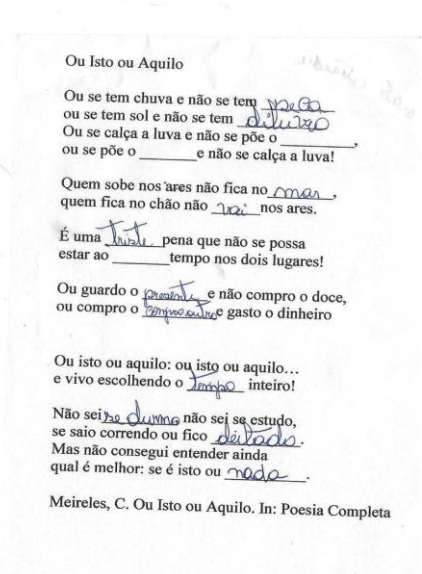 Ou Isto ou Aquilo
Ou se tem chuva e não se tem seca
ou se tem sol e não se tem diluvio
Ou se calça a luva e não se põe o _________,
ou se põe o ________e não se calça a luva!
Quem sobe nos ares não fica no mar,
quem fica no chão não vai nos ares.
É uma triste pena que não se possa
estar ao ________ tempo nos dois lugares!
Ou guardo o presente e não compro o doce,
ou compro o compro outro e gasto o dinheiro
Ou isto ou aquilo: ou isto ou aquilo...
e vivo escolhendo o tempo inteiro!
Não sei se durmo não sei se estudo,
se saio correndo ou fico deitado.
Mas não consegui entender ainda
qual é melhor: se é isto ou nada.
Meireles, C. Ou Isto ou Aquilo. In: Poesia Completa